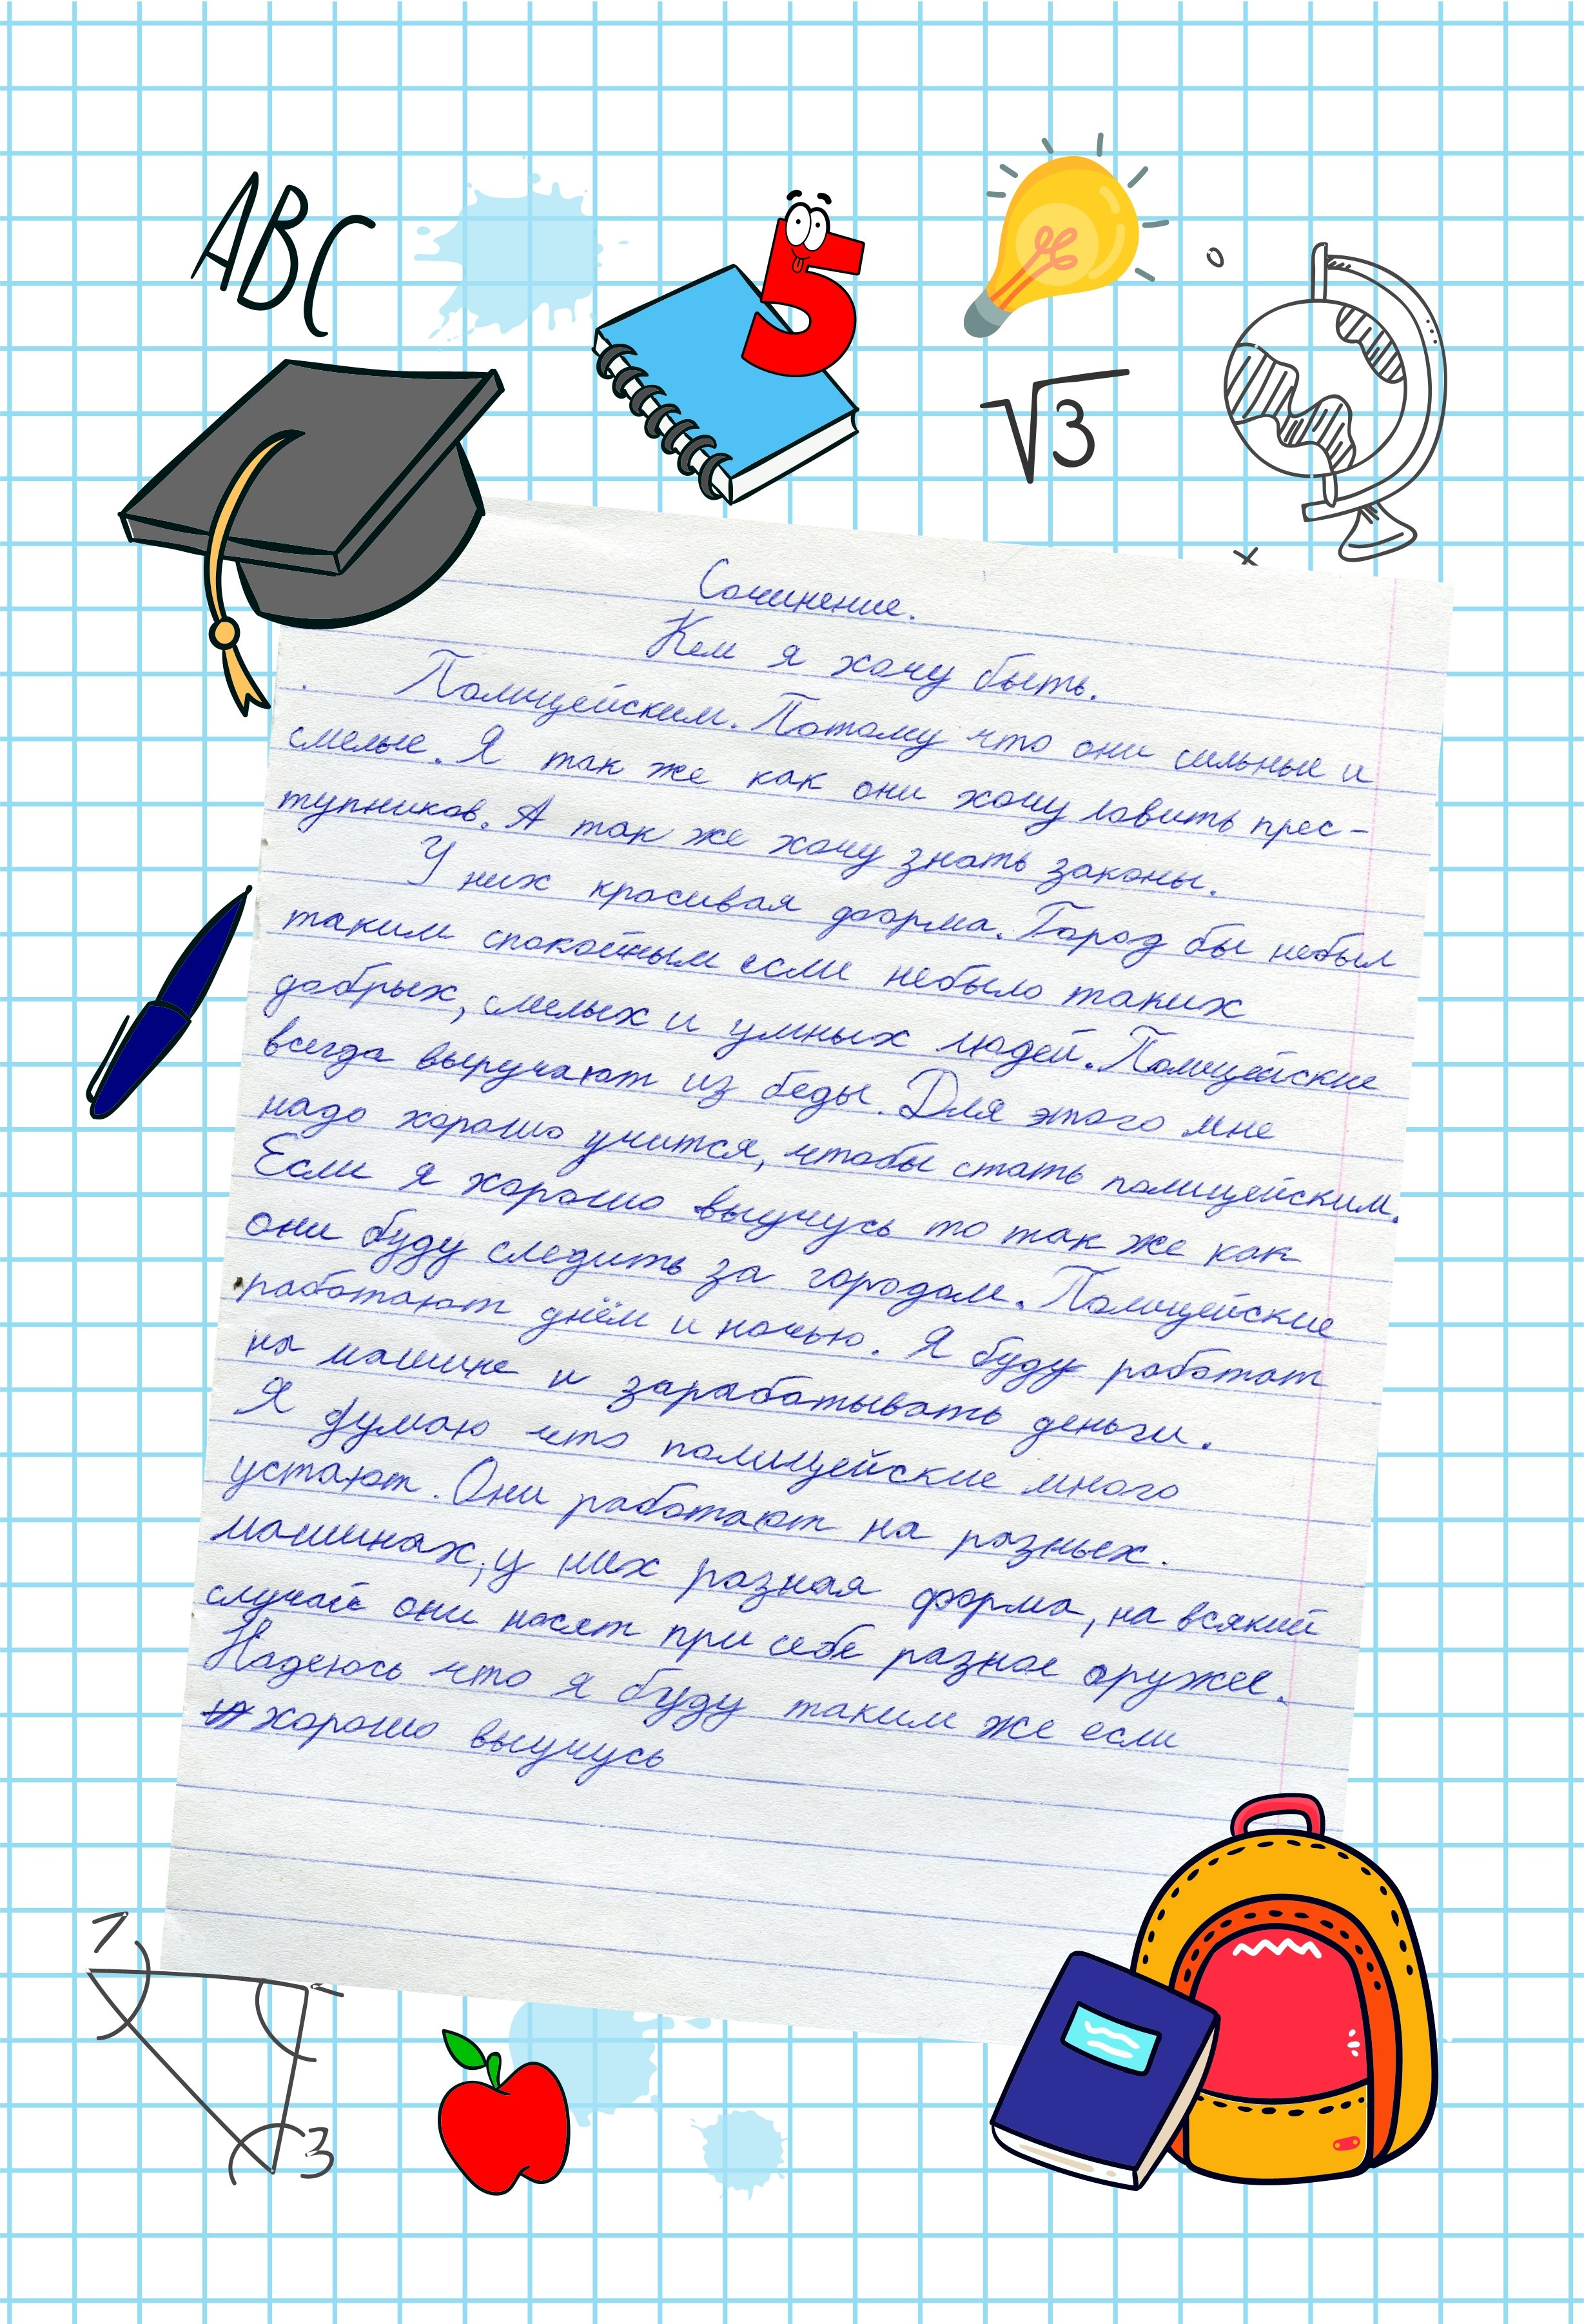 ABC
5
√3
Сочинение.
Кем я хочу быть.
Полицейским. Потому что они сильные и
смелые. Я так же как они хочу ловить прес-
тупников. А так же хочу знать законы.
У них красивая форма. Город бы небыл
таким спокойным если небыло таких
добрых, смелых и умных людей. Полицейские
всегда выручают из беды. Для этого мне
надо хорошо учится, чтобы стать полицейским.
Если я хорошо выучусь то так же как
они буду следить за городом. Полицейские
работают днём и ночью. Я буду работат
на машине и зарабатывать деньги.
Я думаю что полицейские много
устают. Они работают на разных.
машинах, у них разная форма, на всякий
случай они носят при себе разное оружее.
Надеюсь что я буду таким же если
хорошо выучусь
1
3